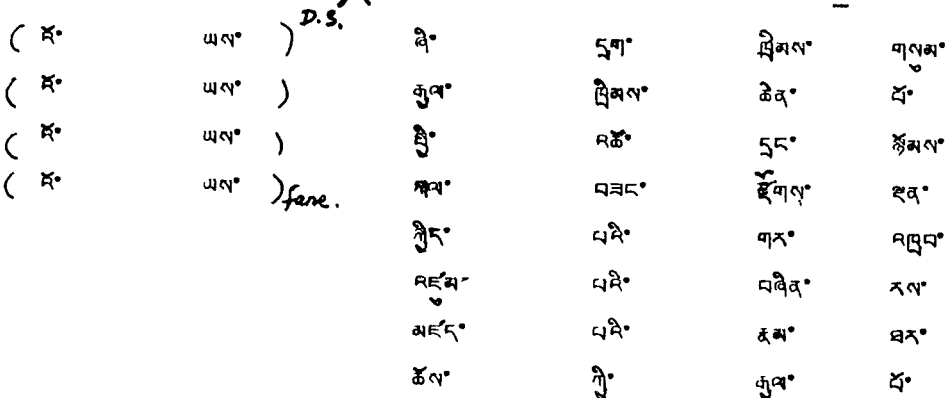 ( ཡས་ ) D.S. ཞི་ དྲག་ ཁྲིམས་ གསུམ་
( ཡས་ ) རྒྱལ་ ཁྲིམས་ ཆེན་ པོ་
( ཡས་ ) འཚོ་ དྲང་ སྙོམས་
( ཡས་ ) fane. སྐལ་ བཟང་ རྫོགས་ ལྡན་
སྐྱིད་ པའི་ གར་ འཁྲབ་
འཛུམ་ པའི་ བཞིན་ རས་
མཛད་ པའི་ རྣམ་ ཐར་
ཆོས་ ཀྱི་ རྒྱལ་ པོ་